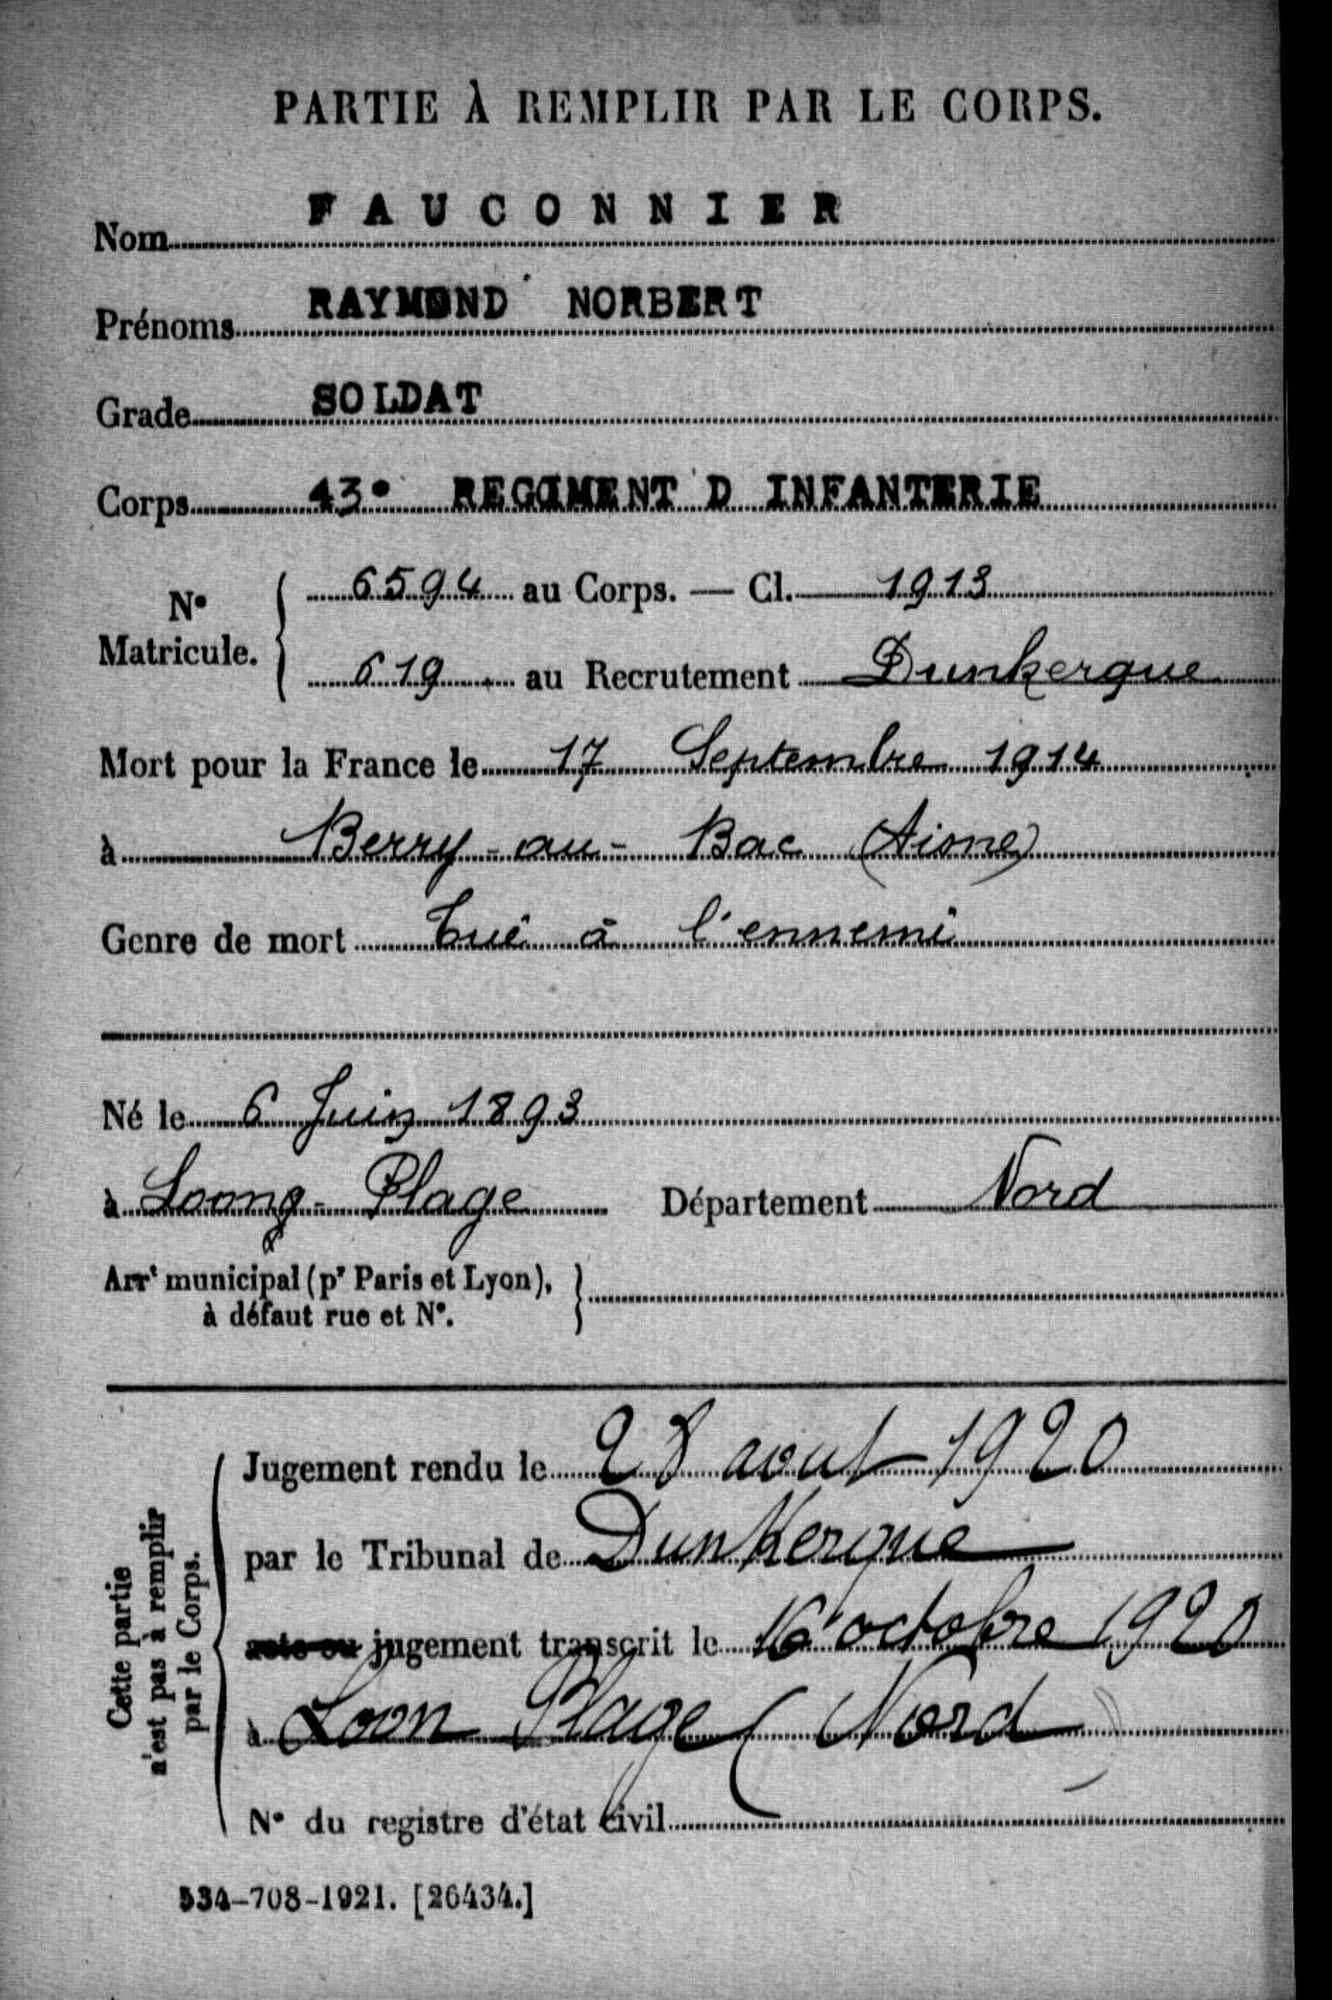 PARTIE À REMPLIR PAR LE CORPS.
Nom FAUCONNIER
Prénoms RAYMOND NORBERT
Grade SOLDAT
Corps 43e REGIMENT D INFANTERIE
No Matricule. { 6594 au Corps. — Cl. 1913
619 au Recrutement Dunkerque
Mort pour la France le 17 Septembre 1914
à Berry-au-Bac (Aisne)
Genre de mort Tué à l'ennemi
Né le 6 Juin 1893
à Loong-Plage Département Nord
Arrt municipal (pr Paris et Lyon),
à défaut rue et No.
Cette partie n'est pas à remplir par le Corps.
Jugement rendu le 28 aout 1920
par le Tribunal de Dunkerque
acte ou jugement transcrit le 16 octobre 1920
à Loon Plage (Nord)
No du registre d'état civil
534-708-1921. [26434.]